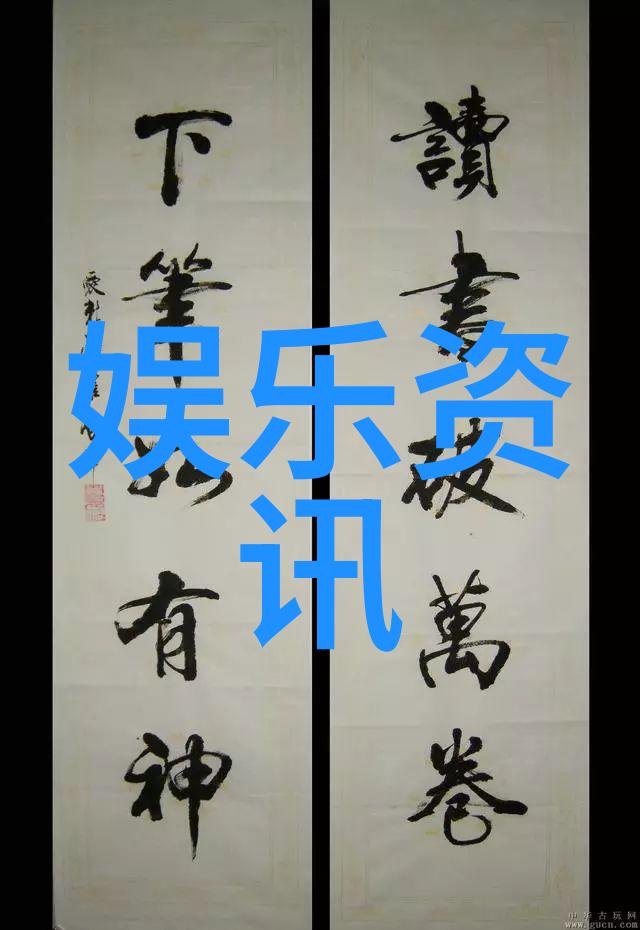 讀書破萬卷
下筆如有神
娱乐资
讯
中华古玩网
www.gucn.com